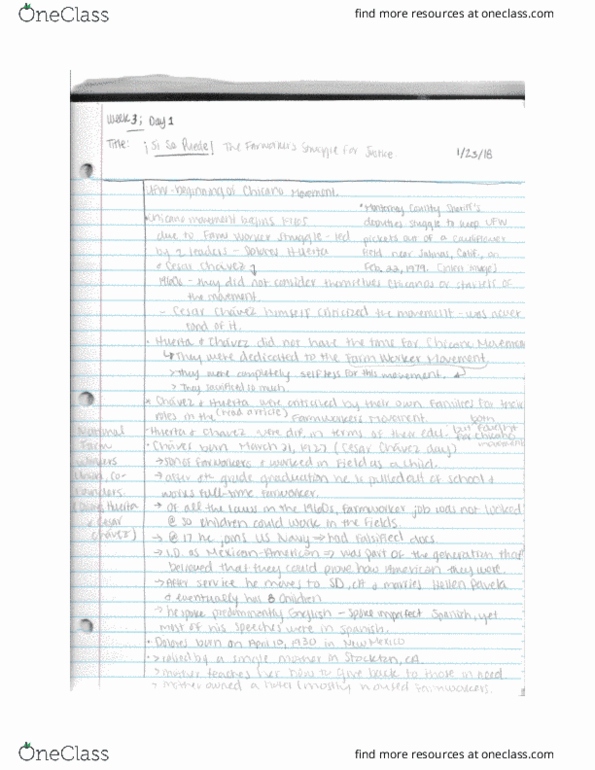 OneClass
find more resources at oneclass.com
Week 3; Day 1
Title: ¡Si Se Puede! The Farmworker's Struggle for Justice
1/23/18
UFW - beginning of Chicano Movement.
Chicano movement begins 1960s
due to Farm Worker struggle - led
by 2 leaders - Dolores Huerta
+ Cesar Chávez
* Monterrey County Sheriff's
deputies struggle to keep UFW
pickets out of a cauliflower
field near Salinas, Calif., on
Feb. 22, 1979.
1960s - they did not consider themselves Chicanos or starters of
the movement.
- Cesar Chávez himself criticized the movement - was never
fond of it.
• Huerta + Chávez did not have the time for Chicano Movement
↳ They were dedicated to the Farm Worker Movement.
> they were completely selfless for this movement.
> They sacrificed so much.
* Chávez + Huerta were criticized by their own families for their
roles in the (read article) Farmworkers Movement.
both
but fought
for Chicano
movement
National
Farm
Workers
Union, Co-
founders
Huerta
+ Cesar
Chávez)
• Huerta + Chavez were dif. in terms of their edu.
• Cháves born March 31, 1927 (Cesar Chávez day)
→ son of Farmworkers + worked in field as a child.
→ after 8th grade graduation he is pulled out of school +
works full-time farmworker.
→ of all the laws in the 1960s, Farmworker job was not looked
@ so children could work in the fields.
→ @ 17 he joins US Navy → had falsified docs.
→ I.D. as Mexican-American → was part of the generation that
believed that they could prove how American they were.
→ After service he moves to SD, CA + marries Hellen Favela
+ eventually has 8 children
→ he spoke predominently English - spoke imperfect Spanish, yet
most of his speeches were in Spanish.
• Dolores born on April 10, 1930 in New Mexico
> raised by a single mother in Stockton, CA.
> mother teaches her how to give back to those in need
> mother owned a hotel (mostly housed farmworkers.
OneClass
find more resources at oneclass.com